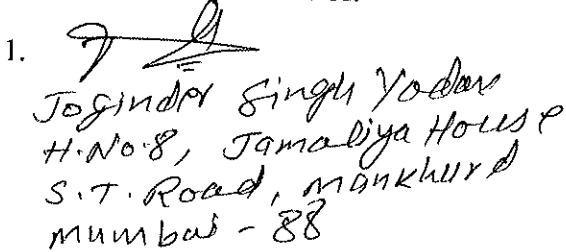 1.
Joginder Singh Yadav
H.No.8, Jamaliya House
S.T. Road, Mankhurd
Mumbai - 88